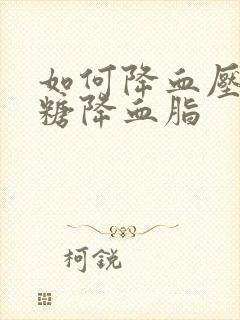 如何降血壓
糖降血脂
柯銳